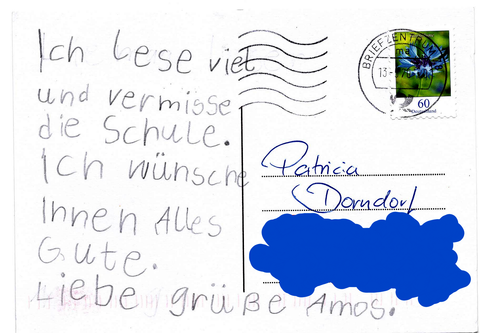 Ich Lese viel
und vermisse
die Schule.
Ich wünsche
Ihnen Alles
Gute.
Liebe grüße Amos.
BRIEFZENTRUM
13
60
Patricia
Dorndorf